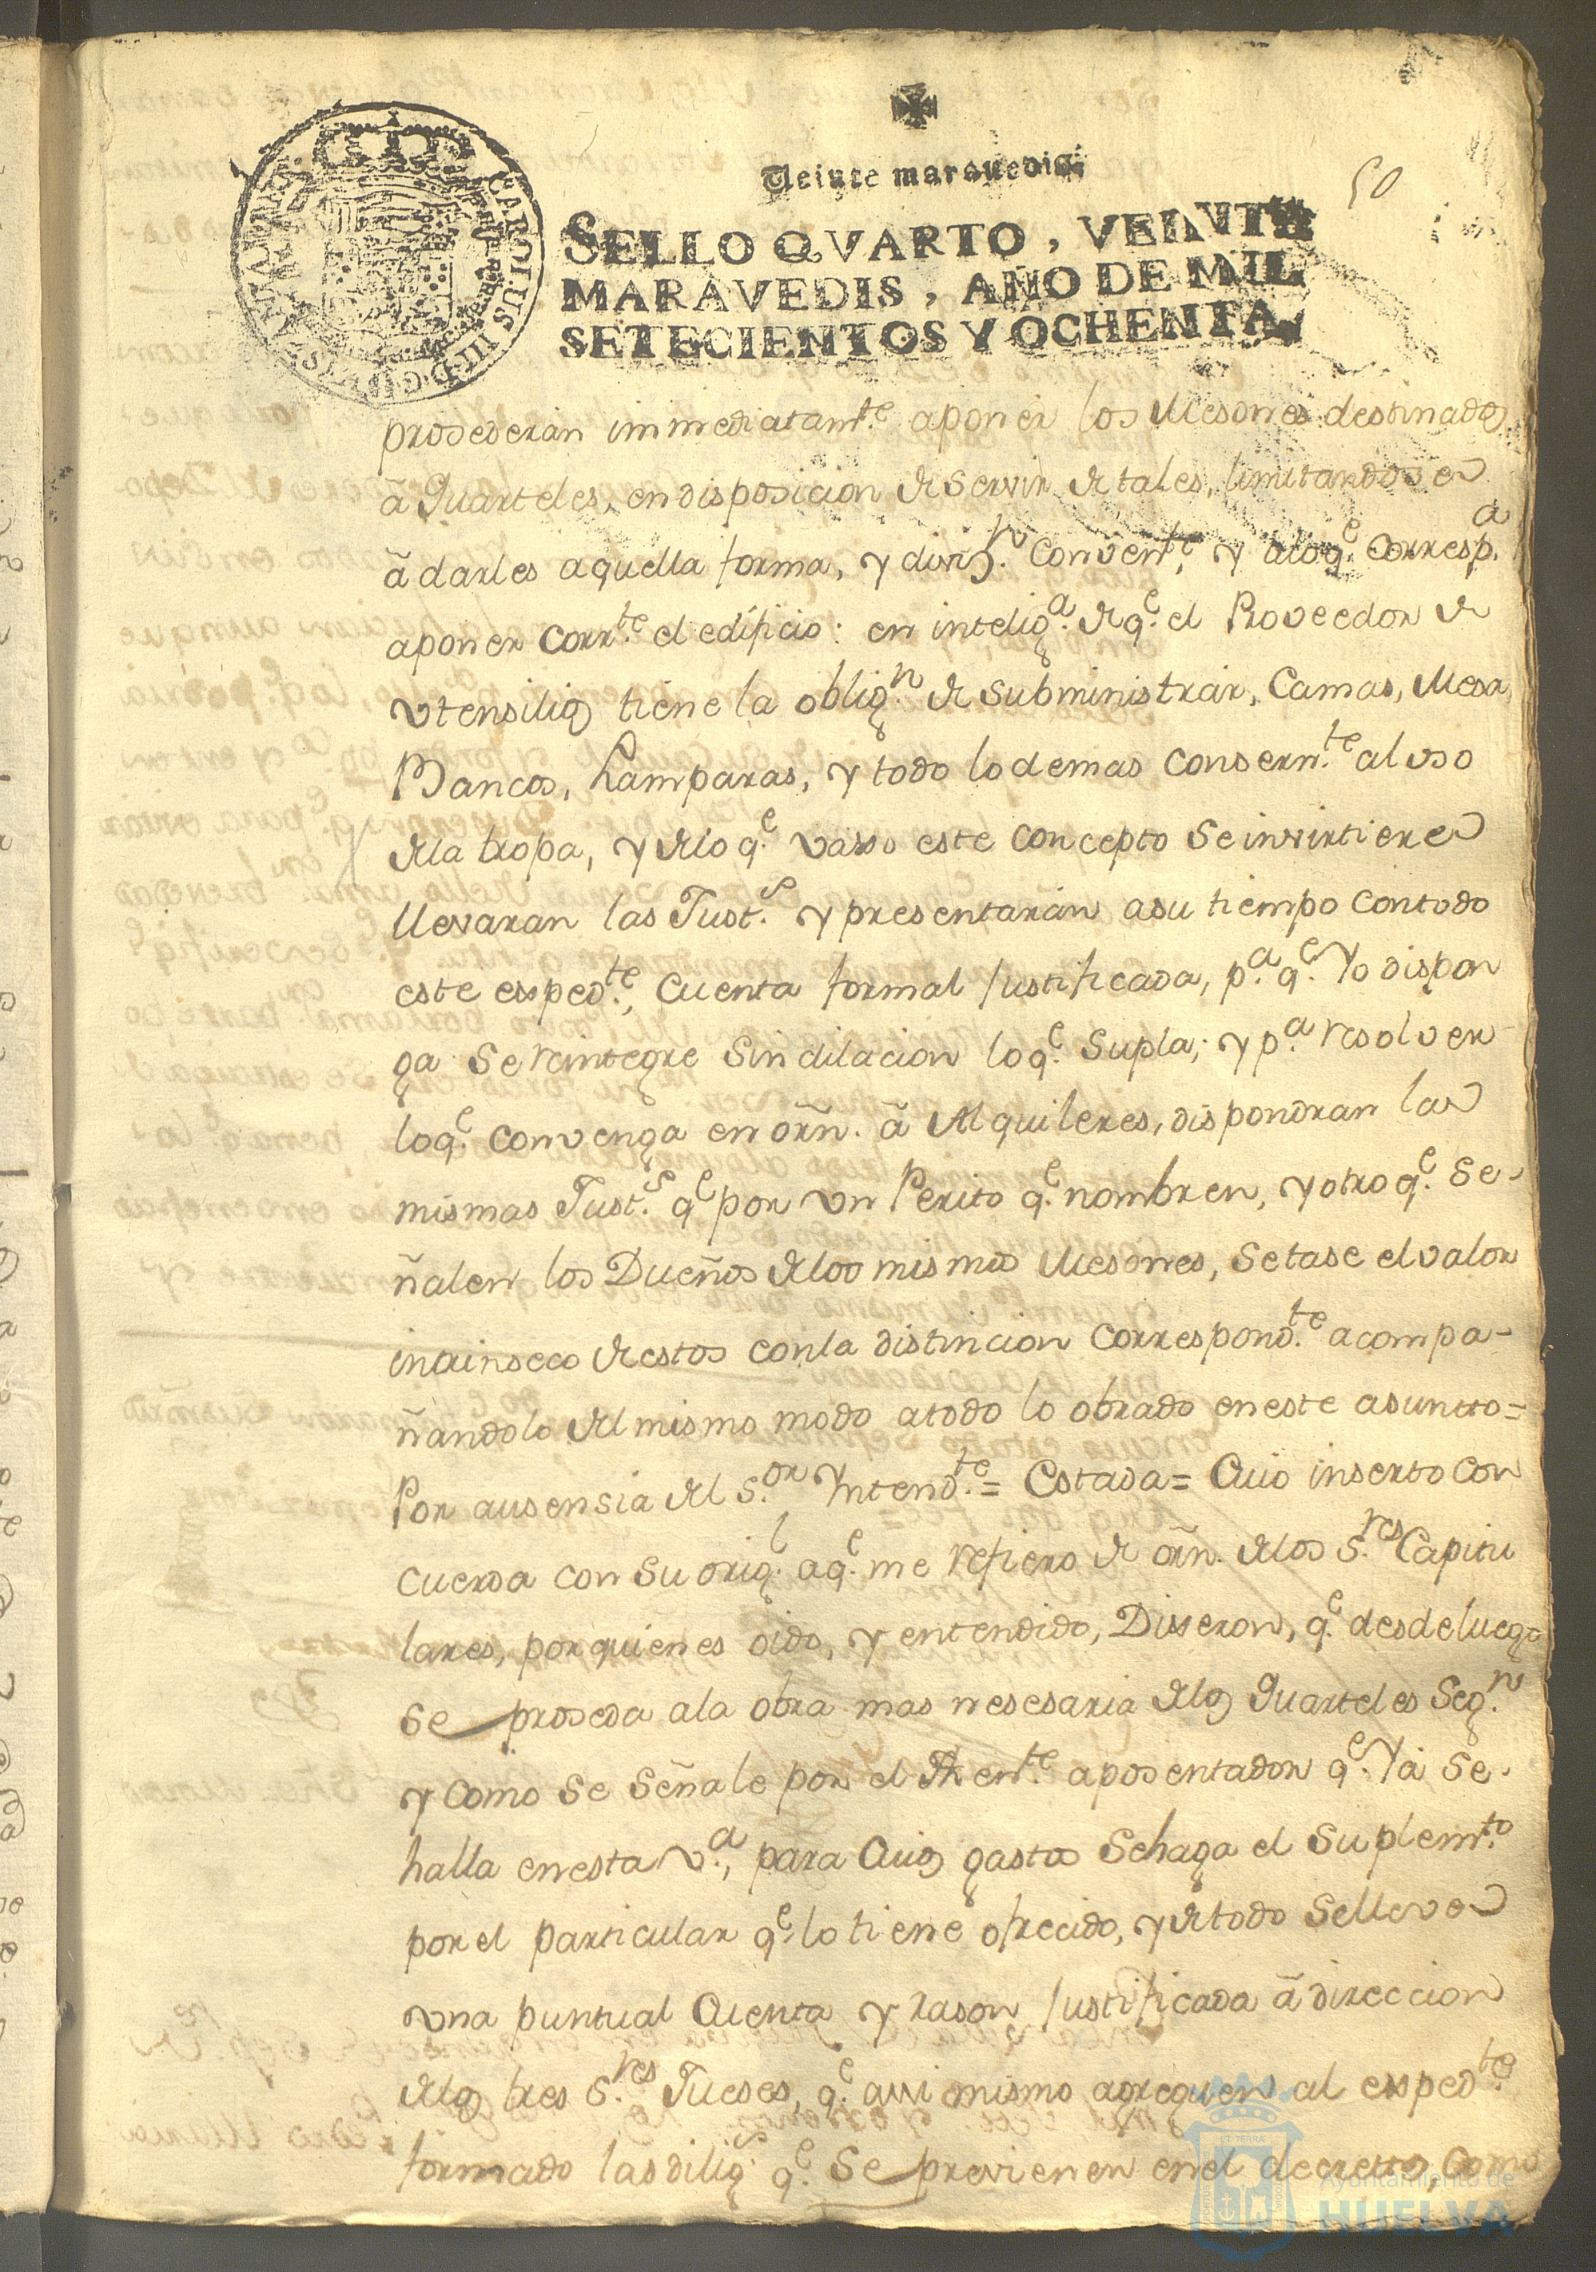 Veinte maravedis.
50
SELLO QVARTO, VEINTE
MARAVEDIS, AÑO DE MIL
SETECIENTOS Y OCHENTA.
CAROLUS III D G
prosederàn immediatamte. aponer los Mesones destinados
â Quarteles, en disposicion de servir de tales, limitandose
â darles aquella forma, y divisn. convente. y aloqe. corresp.a
aponer corrte. el edificio: en intelig.a de qe. el Proveedor de
vtensilios tiene la obligon. de subministrar, Camas, Mesas
Bancos, Lamparas, y todo lodemas consernte. al vso
dela tropa, y delo qe. vaxo este concepto se invirtiere
llevaran las Just.s y presentaràn asu tiempo contodo
este expedte., Cuenta formal justificada, pa. qe. Yo dispon
ga se reintegre sin dilacion loqe. supla; y pa. resolver
loqe. convenga en orñ. â Alquileres, dispondran las
mismas Just.s qe por vn Perito qe. nombren, y otro qe. se-
ñalen los Dueños delos mismos Mesones, setase el valor
intrinseco de estos conla distincion correspondte. acompa-
ñandolo del mismo modo atodo lo obrado en este asuntto=
Por ausensia del S.or Yntendte.= Estada= Cuio inserto con
cuerda con su orig.l aqe. me refiero de orñ. delos S.res Capitu
lares, por quienes oido, y entendido, Dixeron, qe. desde luego
se proseda ala obra mas nesesaria delos Quarteles seg.n
y como se señale por el Thente. aposentador qe. Yà se
halla en esta v.a, para Cuios gastos sehaga el suplemto.
por el particular qe. lo tiene ofrecido, y de todo selleve
vna puntual Cuenta y rason justificada â direccion
delos tres S.res Jueses, qe. assi mismo agreguen al expedte.
formado las dilig.s qe. se previenen en el decretto, como
Ayuntamiento de
HUELVA